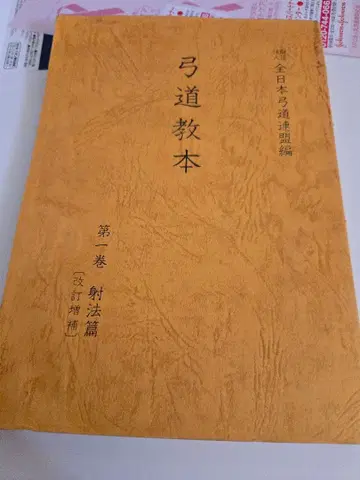 全日本弓道連盟編
弓道教本
第一巻 射法篇
〔改訂増補〕
Johnson&Johnson